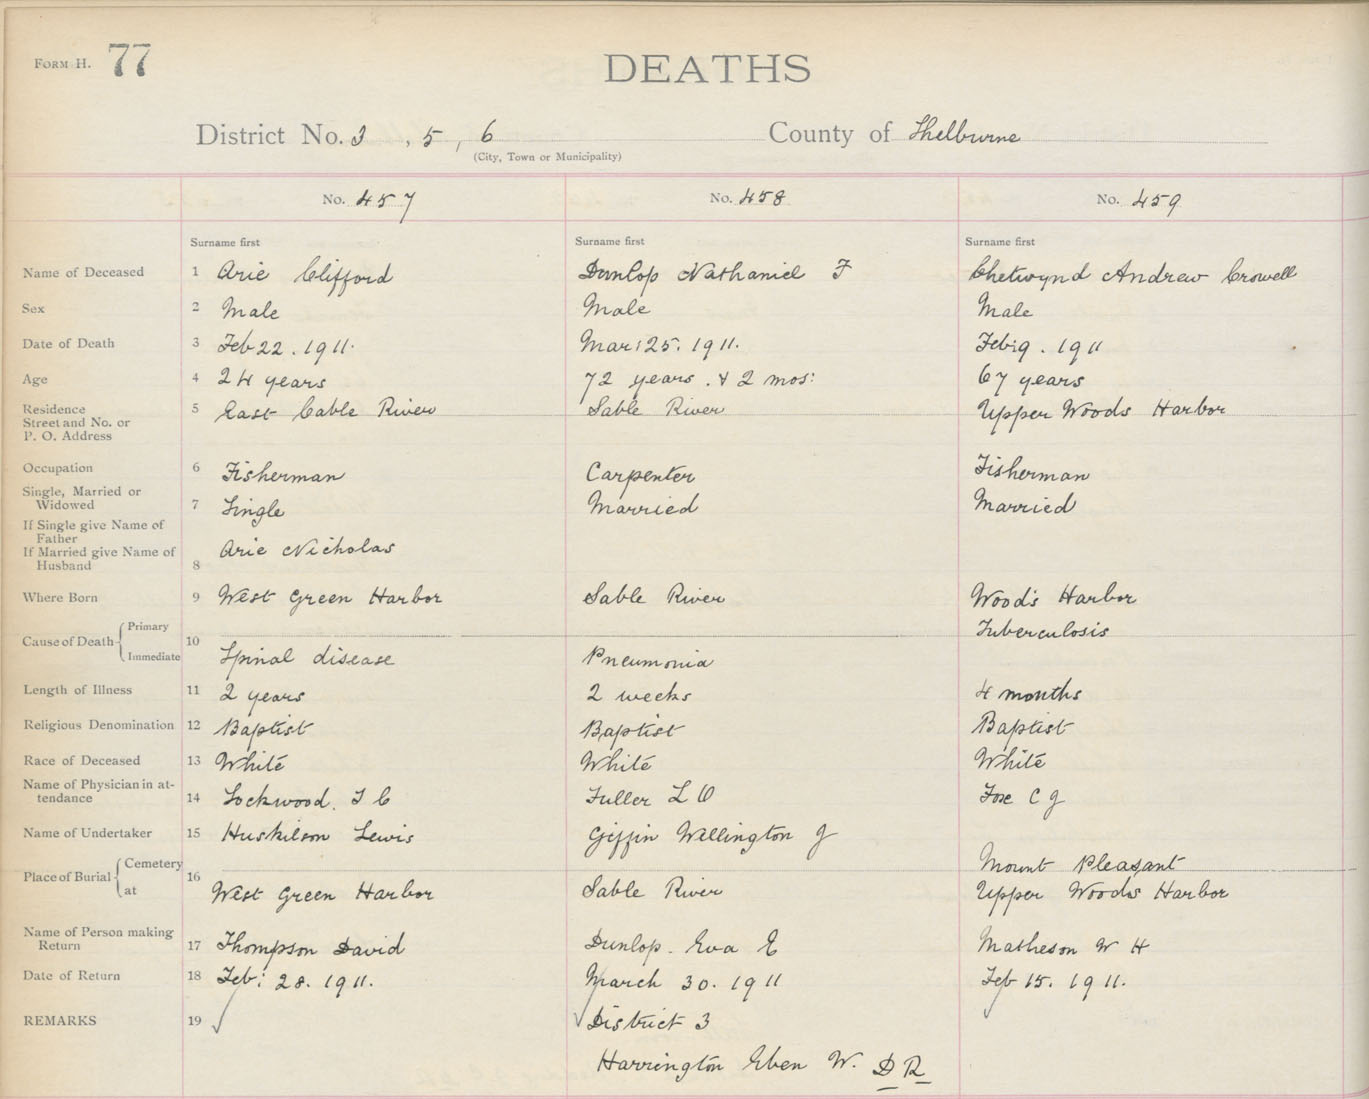 FORM H. 77
DEATHS
District No. 3 , 5 , 6 County of Shelburne
(City, Town or Municipality)
No. 457 No. 458 No. 459
Surname first Surname first Surname first
Name of Deceased 1 Arie Clifford Dunlop Nathaniel F Chetwynd Andrew Crowell
Sex 2 Male Male Male
Date of Death 3 Feb 22. 1911. Mar: 25. 1911. Feb: 9. 1911
Age 4 24 years 72 years. & 2 mos: 67 years
Residence 5 East Cable River Sable River Upper Woods Harbor
Street and No. or
P. O. Address
Occupation 6 Fisherman Carpenter Fisherman
Single, Married or
Widowed 7 Single Married Married
If Single give Name of
Father
If Married give Name of Arie Nicholas
Husband 8
Where Born 9 West Green Harbor Sable River Wood's Harbor
Primary Tuberculosis
Cause of Death 10
Immediate Spinal disease Pneumonia
Length of Illness 11 2 years 2 weeks 4 months
Religious Denomination 12 Baptist Baptist Baptist
Race of Deceased 13 White White White
Name of Physician in at-
tendance 14 Lockwood. T C Fuller L O Fox C J
Name of Undertaker 15 Huskilson Lewis Giffin Wellington J
Cemetery Mount Pleasant
Place of Burial 16
at West Green Harbor Sable River Upper Woods Harbor
Name of Person making
Return 17 Thompson David Dunlop. Eva E Matheson W H
Date of Return 18 Feb: 28. 1911. March 30. 1911 Feb 15. 1911.
REMARKS 19 District 3
Harrington Eben W. D R